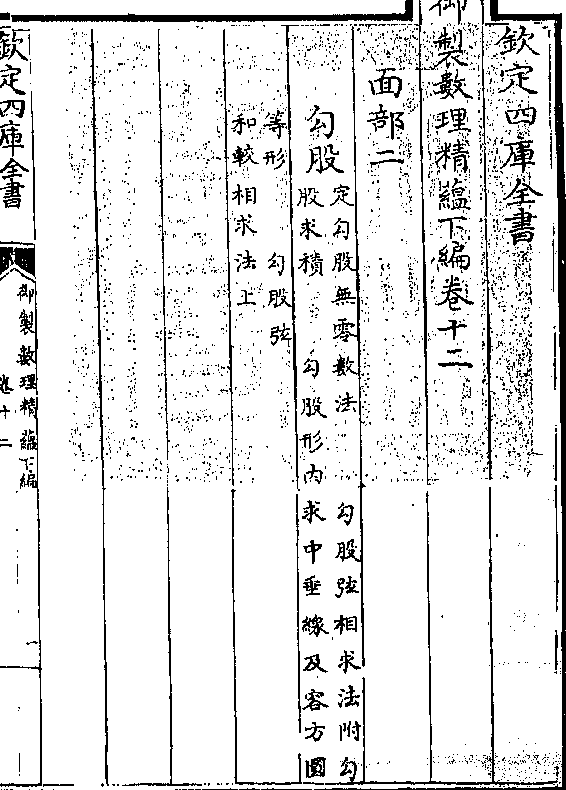 欽定四庫全書
御製數理精蘊下編卷十二
面部二
勾股
定勾股無零數法　勾股弦相求法附勾
股求積　勾股形内求中垂線及容方圓
等形　勾股弦
和較相求法上
欽定四庫全書
御製數理精蘊下編
卷十二
一